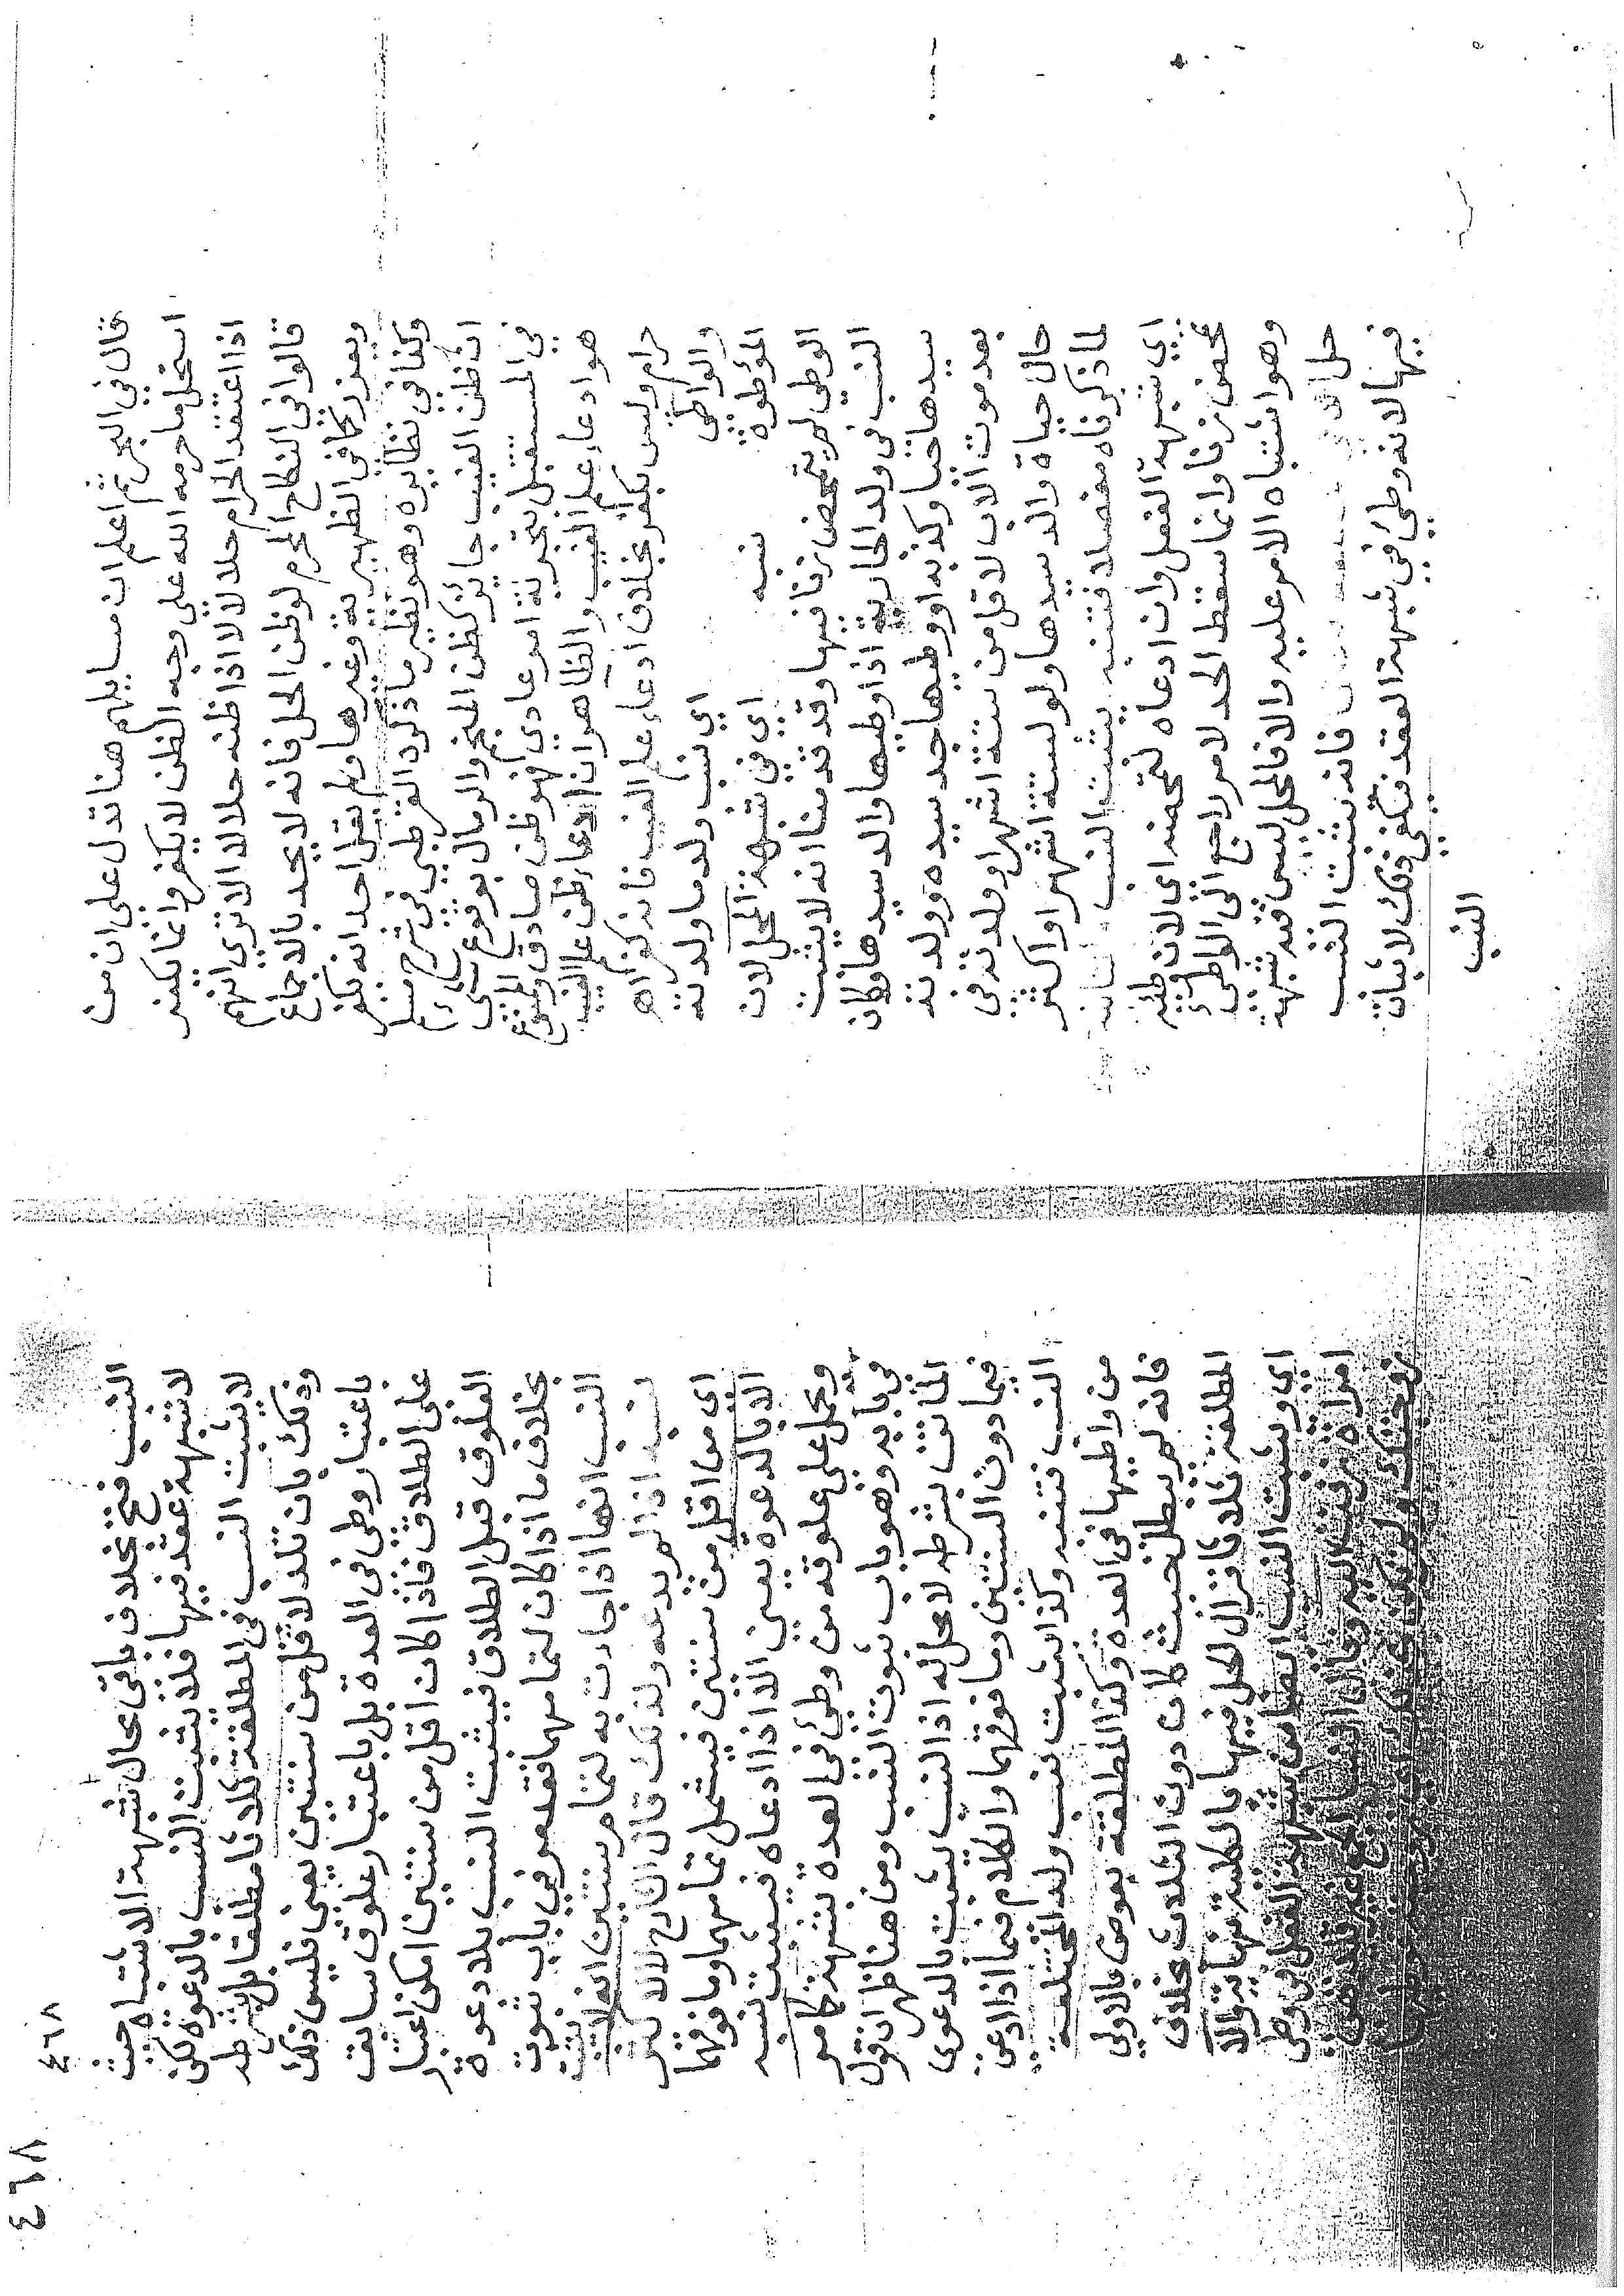 قال في البحر ثم اعلم ان مسايلهم هنا تدل على ان من
استحل ما حرمه الله على وجه الظن لا يكفر وانما يكفر
اذا اعتقد الحرام حلالا لا اذا ظنه حلالا الا ترى انهم
قالوا في النكاح المحرم لو ظن الحل فانه لا يحد بالاجماع
ويعزر كما في الظهيرية وغيرها ولم يقل احد انه يكفر
وكذا في نظايره وهو نظير ما ذكره القرطبي في شرح مسلم
ان ظن الغيب جايز كظن المنجم والرمال بوقوع شئ
في المستقبل بتجربة امر عادي فهو ظن صادق والممنوع
هو ادعاء علم الغيب والظاهر ان ادعاء ظن الغيب
حرام وليس بكفر بخلاف ادعاء علم الغيب فانه كفر اه
والواطئ اي نسب ولد ما ولدته
الموطوة نسبه اي في شبهة المحل لان
الوطئ لم يتمحض زنا فيها وقد قدمنا انه لا يثبت
النسب في ولد الجارية اذا وطيها والد سيدها وكان
سيدها حيا وكذبه او وطيها جد سيده وولدته
بعد موت الاب لاقل من ستة اشهر او ولدته في
حال حياة والد سيدها ولو لستة اشهر او اكثر
لما ذكرناه مفصلا فتنبه يثبت النسب
اي شبهة الفعل وان ادعاه لتمحضه اي لان وطئه
تمحض زنا وانما سقط الحد لامر راجع الى الواطئ
وهو اشتباه الامر عليه والا فالمحل ليس فيه شبهة
حل فانه يثبت النسب
فيها لانه وطئ في شبهة العقد فيكفي ذلك لاثبات
النسب
٤٦٨
٤٦٨
النسب فتح بخلاف باقي محال شبهة الاشتباه حيث
لا شبهة عقد فيها فلا يثبت النسب بالدعوة لكن
لا يثبت النسب في المطلقة ثلاثا مطلقا بل بشرطه
وذلك بان تلد لاقل من سنتين يعني فليس ذلك
باعتبار وطئ في العدة بل باعتبار علوق سابق
على الطلاق فاذا كان اقل من سنتين امكن اعتبار
العلوق قبل الطلاق فيثبت النسب بلا دعوة
بخلاف ما اذا كان لتمامهما فقد مر في باب ثبوت
النسب انها اذا جاءت به لتمام سنتين انه لا يثبت
نسبه اذا لم يدعه ولذلك قال الشارح لا لاكثر
اي من اقل من سنتين فيشمل تمامهما وما فوقهما
الا بالدعوة يعني الا اذا ادعاه فيثبت نسبه
ويحمل على علوقه من وطئ في العدة بشبهة كما مر
في بابه وهو باب ثبوت النسب ومن هنا ظهر ان قول
الماتن بشرطه لا محل له اذ النسب يثبت بالدعوى
فيما دون السنتين وما فوقهما والكلام فيما اذا ادعى
النسب فتنبه وكذا يثبت نسب ولد المختلعة
من واطيها في العدة وكذا المطلقة بعوض بالاولى
فانه لم يبطل حيث كان دون الثلاث بخلاف
المطلقة ثلاثا فزال الحل فيها بالكلية نهاية والا
اي ويثبت النسب ايضا من شبهة الفعل في وطى
امراة زفت اليه وقال النسا
زوجتك ولم تكن